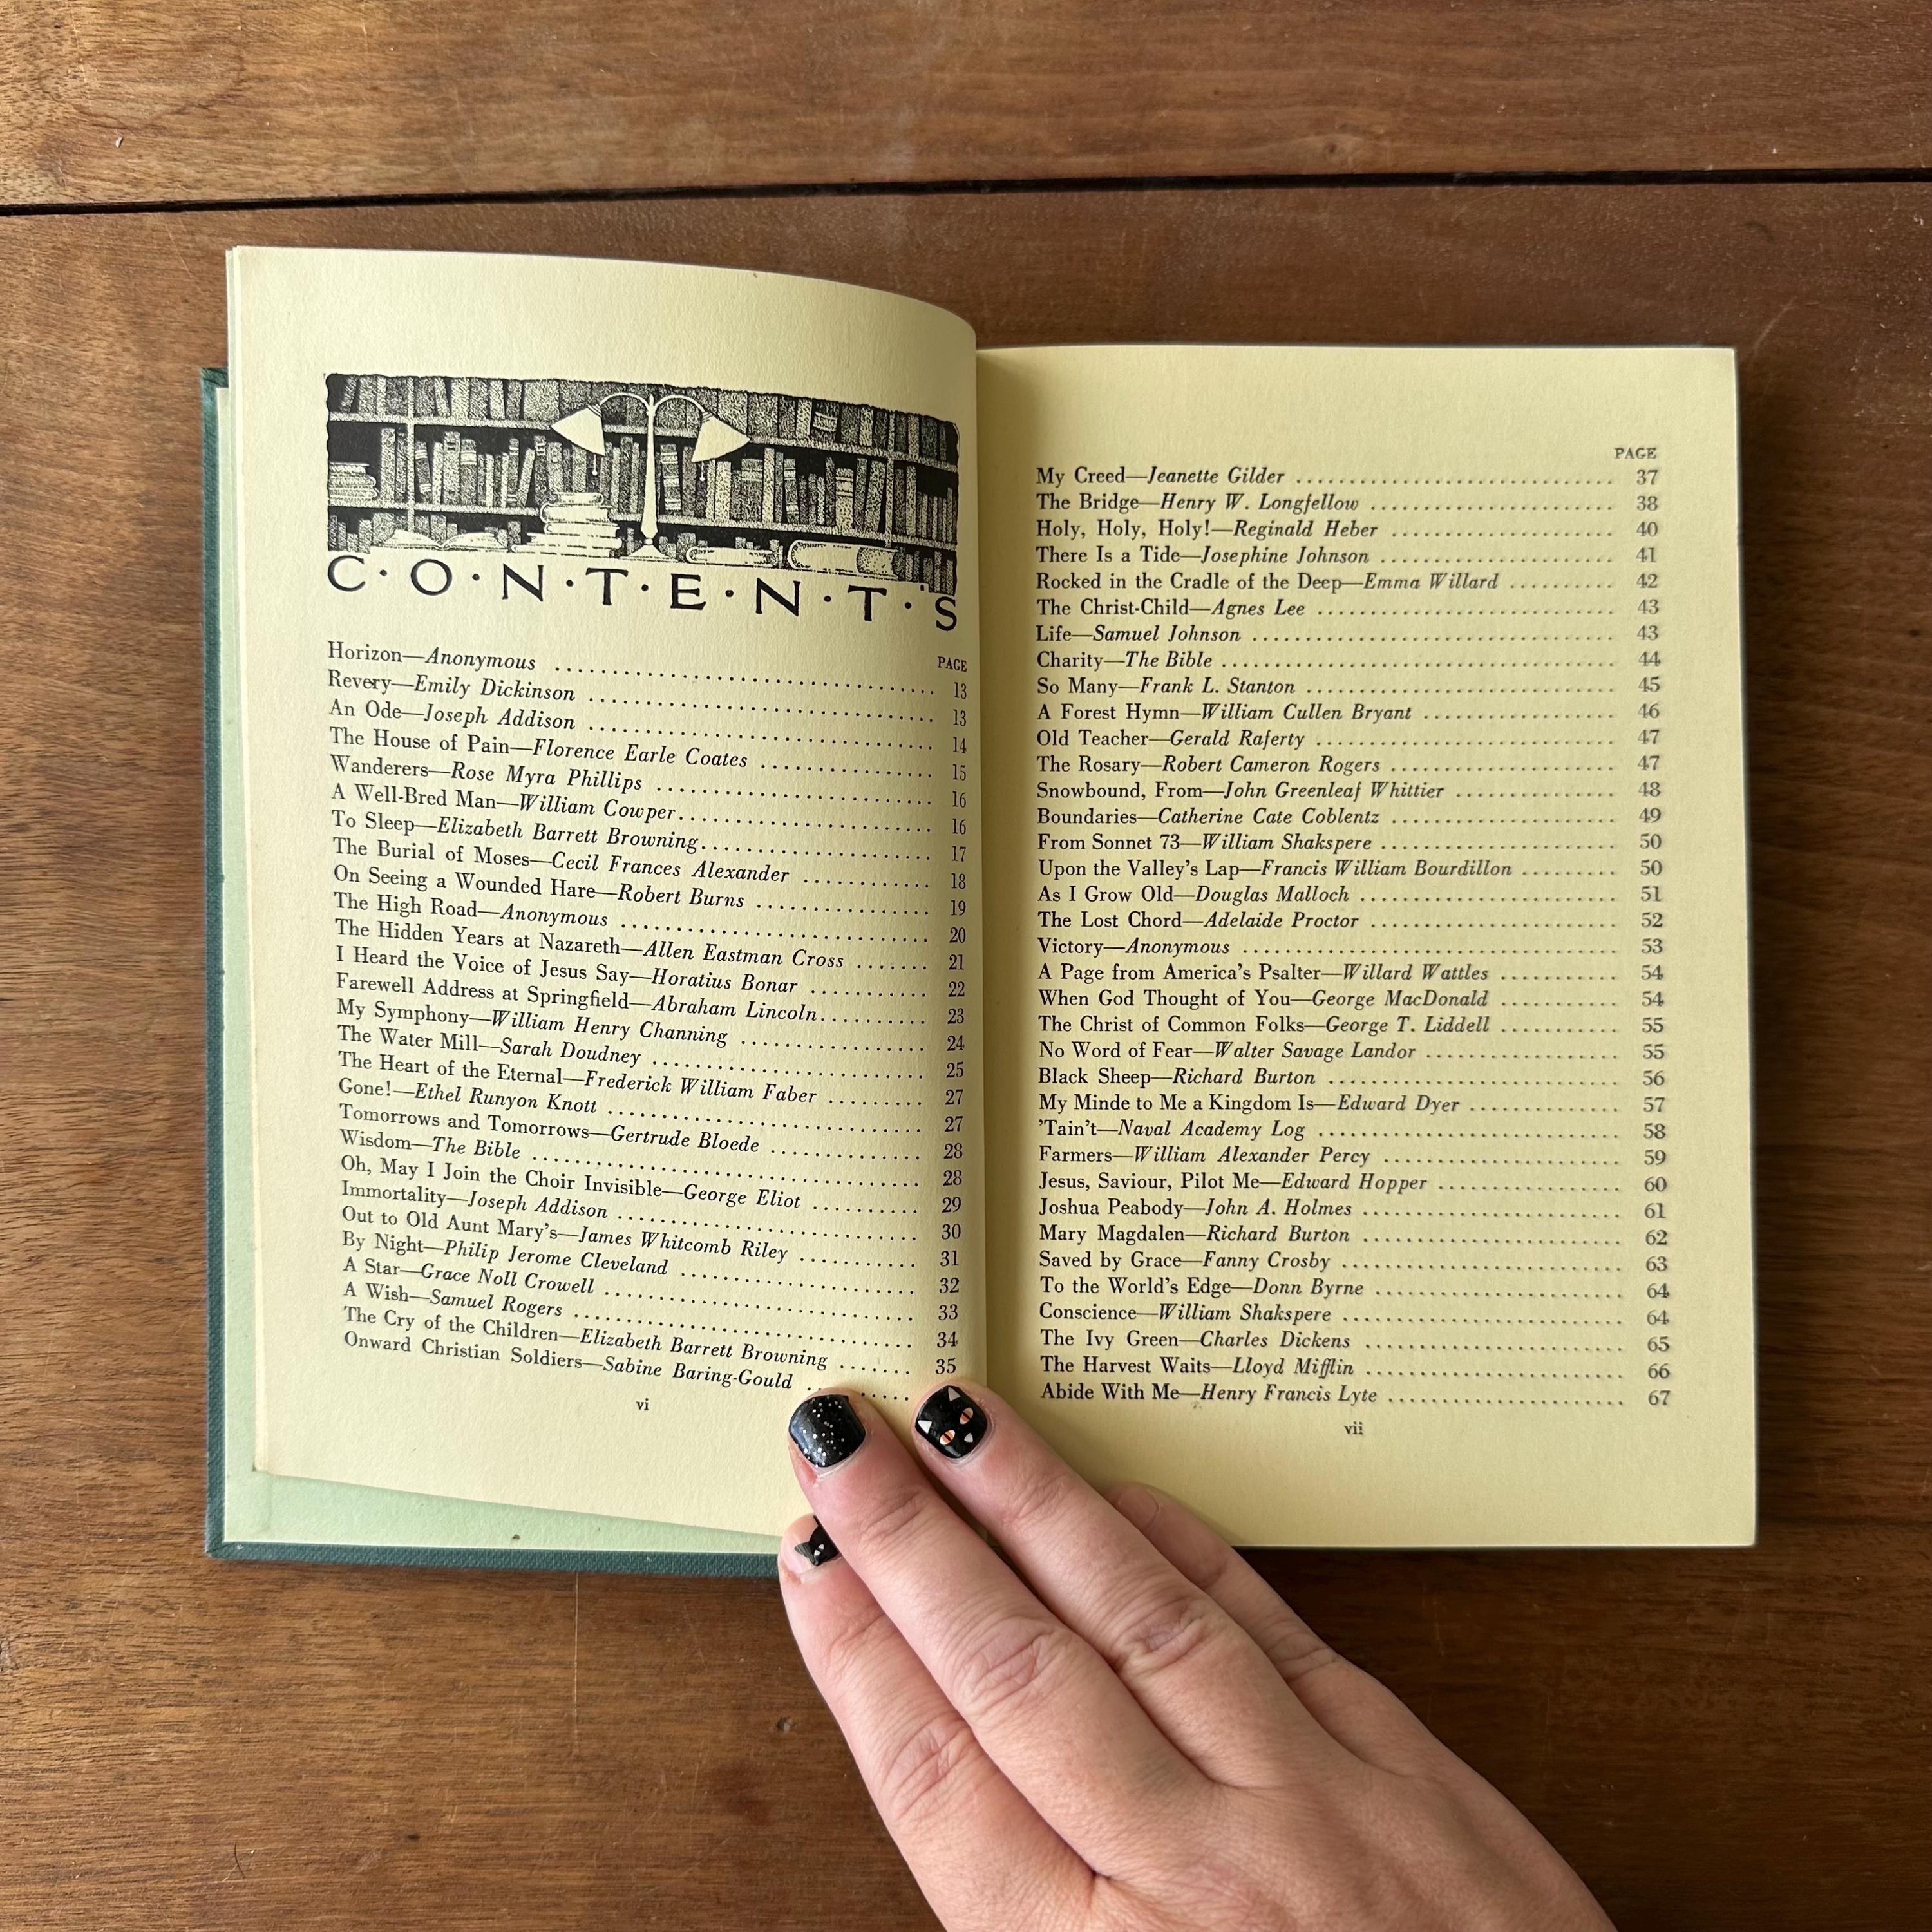 C·O·N·T·E·N·T·S
PAGE
Horizon—Anonymous .......... 13
Revery—Emily Dickinson .......... 13
An Ode—Joseph Addison .......... 14
The House of Pain—Florence Earle Coates .......... 15
Wanderers—Rose Myra Phillips .......... 16
A Well-Bred Man—William Cowper .......... 16
To Sleep—Elizabeth Barrett Browning .......... 17
The Burial of Moses—Cecil Frances Alexander .......... 18
On Seeing a Wounded Hare—Robert Burns .......... 19
The High Road—Anonymous .......... 20
The Hidden Years at Nazareth—Allen Eastman Cross .......... 21
I Heard the Voice of Jesus Say—Horatius Bonar .......... 22
Farewell Address at Springfield—Abraham Lincoln .......... 23
My Symphony—William Henry Channing .......... 24
The Water Mill—Sarah Doudney .......... 25
The Heart of the Eternal—Frederick William Faber .......... 27
Gone!—Ethel Runyon Knott .......... 27
Tomorrows and Tomorrows—Gertrude Bloede .......... 28
Wisdom—The Bible .......... 28
Oh, May I Join the Choir Invisible—George Eliot .......... 29
Immortality—Joseph Addison .......... 30
Out to Old Aunt Mary's—James Whitcomb Riley .......... 31
By Night—Philip Jerome Cleveland .......... 32
A Star—Grace Noll Crowell .......... 33
A Wish—Samuel Rogers .......... 34
The Cry of the Children—Elizabeth Barrett Browning .......... 35
Onward Christian Soldiers—Sabine Baring-Gould ..........
vi
PAGE
My Creed—Jeanette Gilder .......... 37
The Bridge—Henry W. Longfellow .......... 38
Holy, Holy, Holy!—Reginald Heber .......... 40
There Is a Tide—Josephine Johnson .......... 41
Rocked in the Cradle of the Deep—Emma Willard .......... 42
The Christ-Child—Agnes Lee .......... 43
Life—Samuel Johnson .......... 43
Charity—The Bible .......... 44
So Many—Frank L. Stanton .......... 45
A Forest Hymn—William Cullen Bryant .......... 46
Old Teacher—Gerald Raferty .......... 47
The Rosary—Robert Cameron Rogers .......... 47
Snowbound, From—John Greenleaf Whittier .......... 48
Boundaries—Catherine Cate Coblentz .......... 49
From Sonnet 73—William Shakspere .......... 50
Upon the Valley's Lap—Francis William Bourdillon .......... 50
As I Grow Old—Douglas Malloch .......... 51
The Lost Chord—Adelaide Proctor .......... 52
Victory—Anonymous .......... 53
A Page from America's Psalter—Willard Wattles .......... 54
When God Thought of You—George MacDonald .......... 54
The Christ of Common Folks—George T. Liddell .......... 55
No Word of Fear—Walter Savage Landor .......... 55
Black Sheep—Richard Burton .......... 56
My Minde to Me a Kingdom Is—Edward Dyer .......... 57
'Tain't—Naval Academy Log .......... 58
Farmers—William Alexander Percy .......... 59
Jesus, Saviour, Pilot Me—Edward Hopper .......... 60
Joshua Peabody—John A. Holmes .......... 61
Mary Magdalen—Richard Burton .......... 62
Saved by Grace—Fanny Crosby .......... 63
To the World's Edge—Donn Byrne .......... 64
Conscience—William Shakspere .......... 64
The Ivy Green—Charles Dickens .......... 65
The Harvest Waits—Lloyd Mifflin .......... 66
Abide With Me—Henry Francis Lyte .......... 67
vii